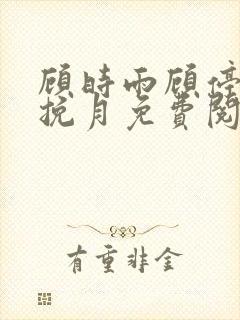 顾时雨顾停
挽月免费阅
有重非金